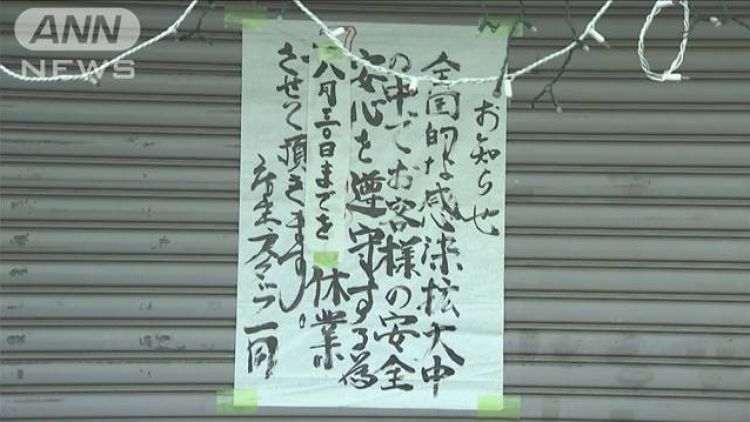 ANN
NEWS
お知らせ
全国的な感染拡大中
の中でお客様の安全
安心を遵守する為
八月三〇日までを休業
させて頂きます。
一同